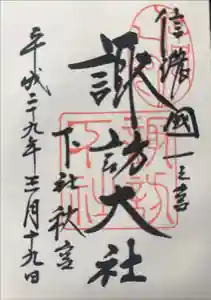 信濃國一之宮
諏訪大社
下社秋宮
平成二十九年三月十九日